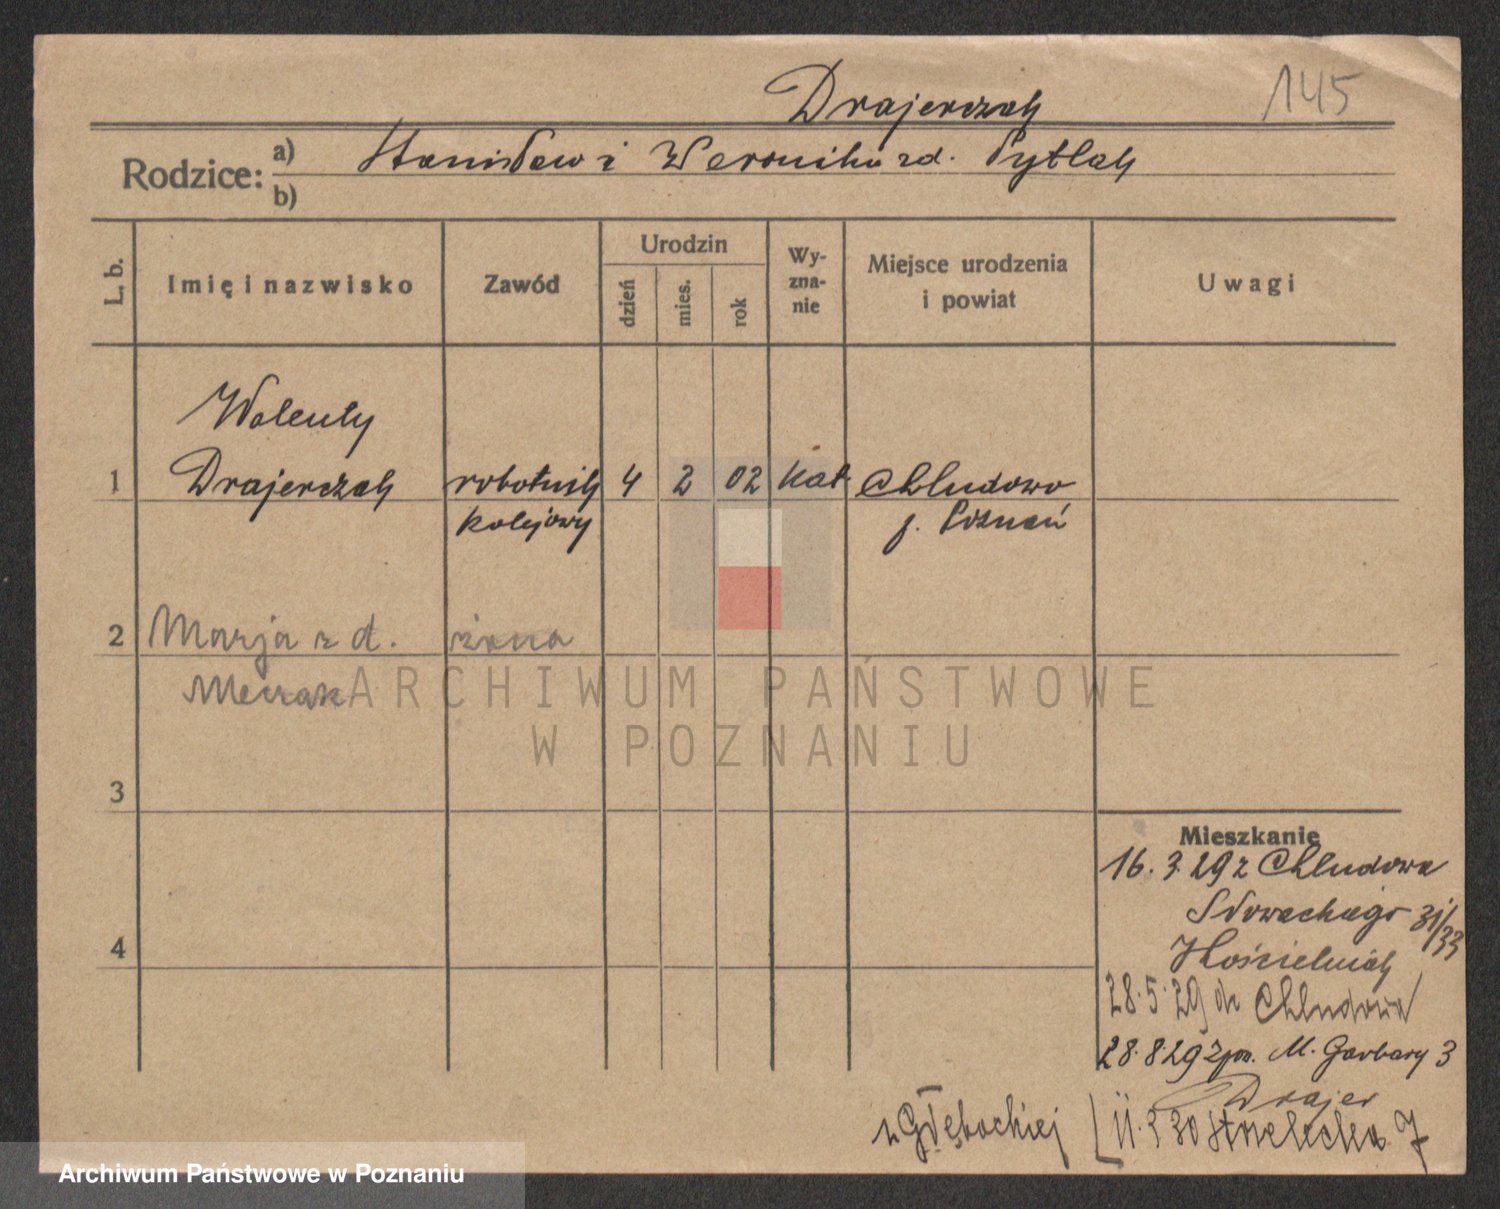 145
Drajerczak
Rodzice: a) Stanisław i Weronika z d. Pytlak
b)
L. b.
Imię i nazwisko
Zawód
Urodzin
dzień
mies.
rok
Wy-
zna-
nie
Miejsce urodzenia
i powiat
Uwagi
Walenty
1 Drajerczak robotnik 4 2 02 kat. Chludowo
kolejowy p. Poznań
2 Marja z d. żona
ARCHIWUM PAŃSTWOWE
W POZNANIU
3
4
Mieszkanie
16.3.29 z Chludowa
Słowackiego 31/33
Kościelniak
28.5.29 do Chludowa
28.8.29 M. Garbary 3
Drajer
z Głębockiej 11.3 30 Strzelecka 7
Archiwum Państwowe w Poznaniu